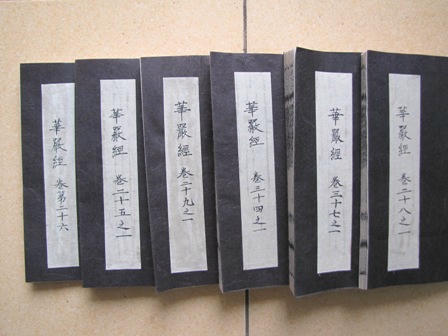 華嚴經 卷第二十六
華嚴經 卷二十五之一
華嚴經 卷二十九之一
華嚴經 卷三十四之一
華嚴經 卷三十七之一
華嚴經 卷二十八之一